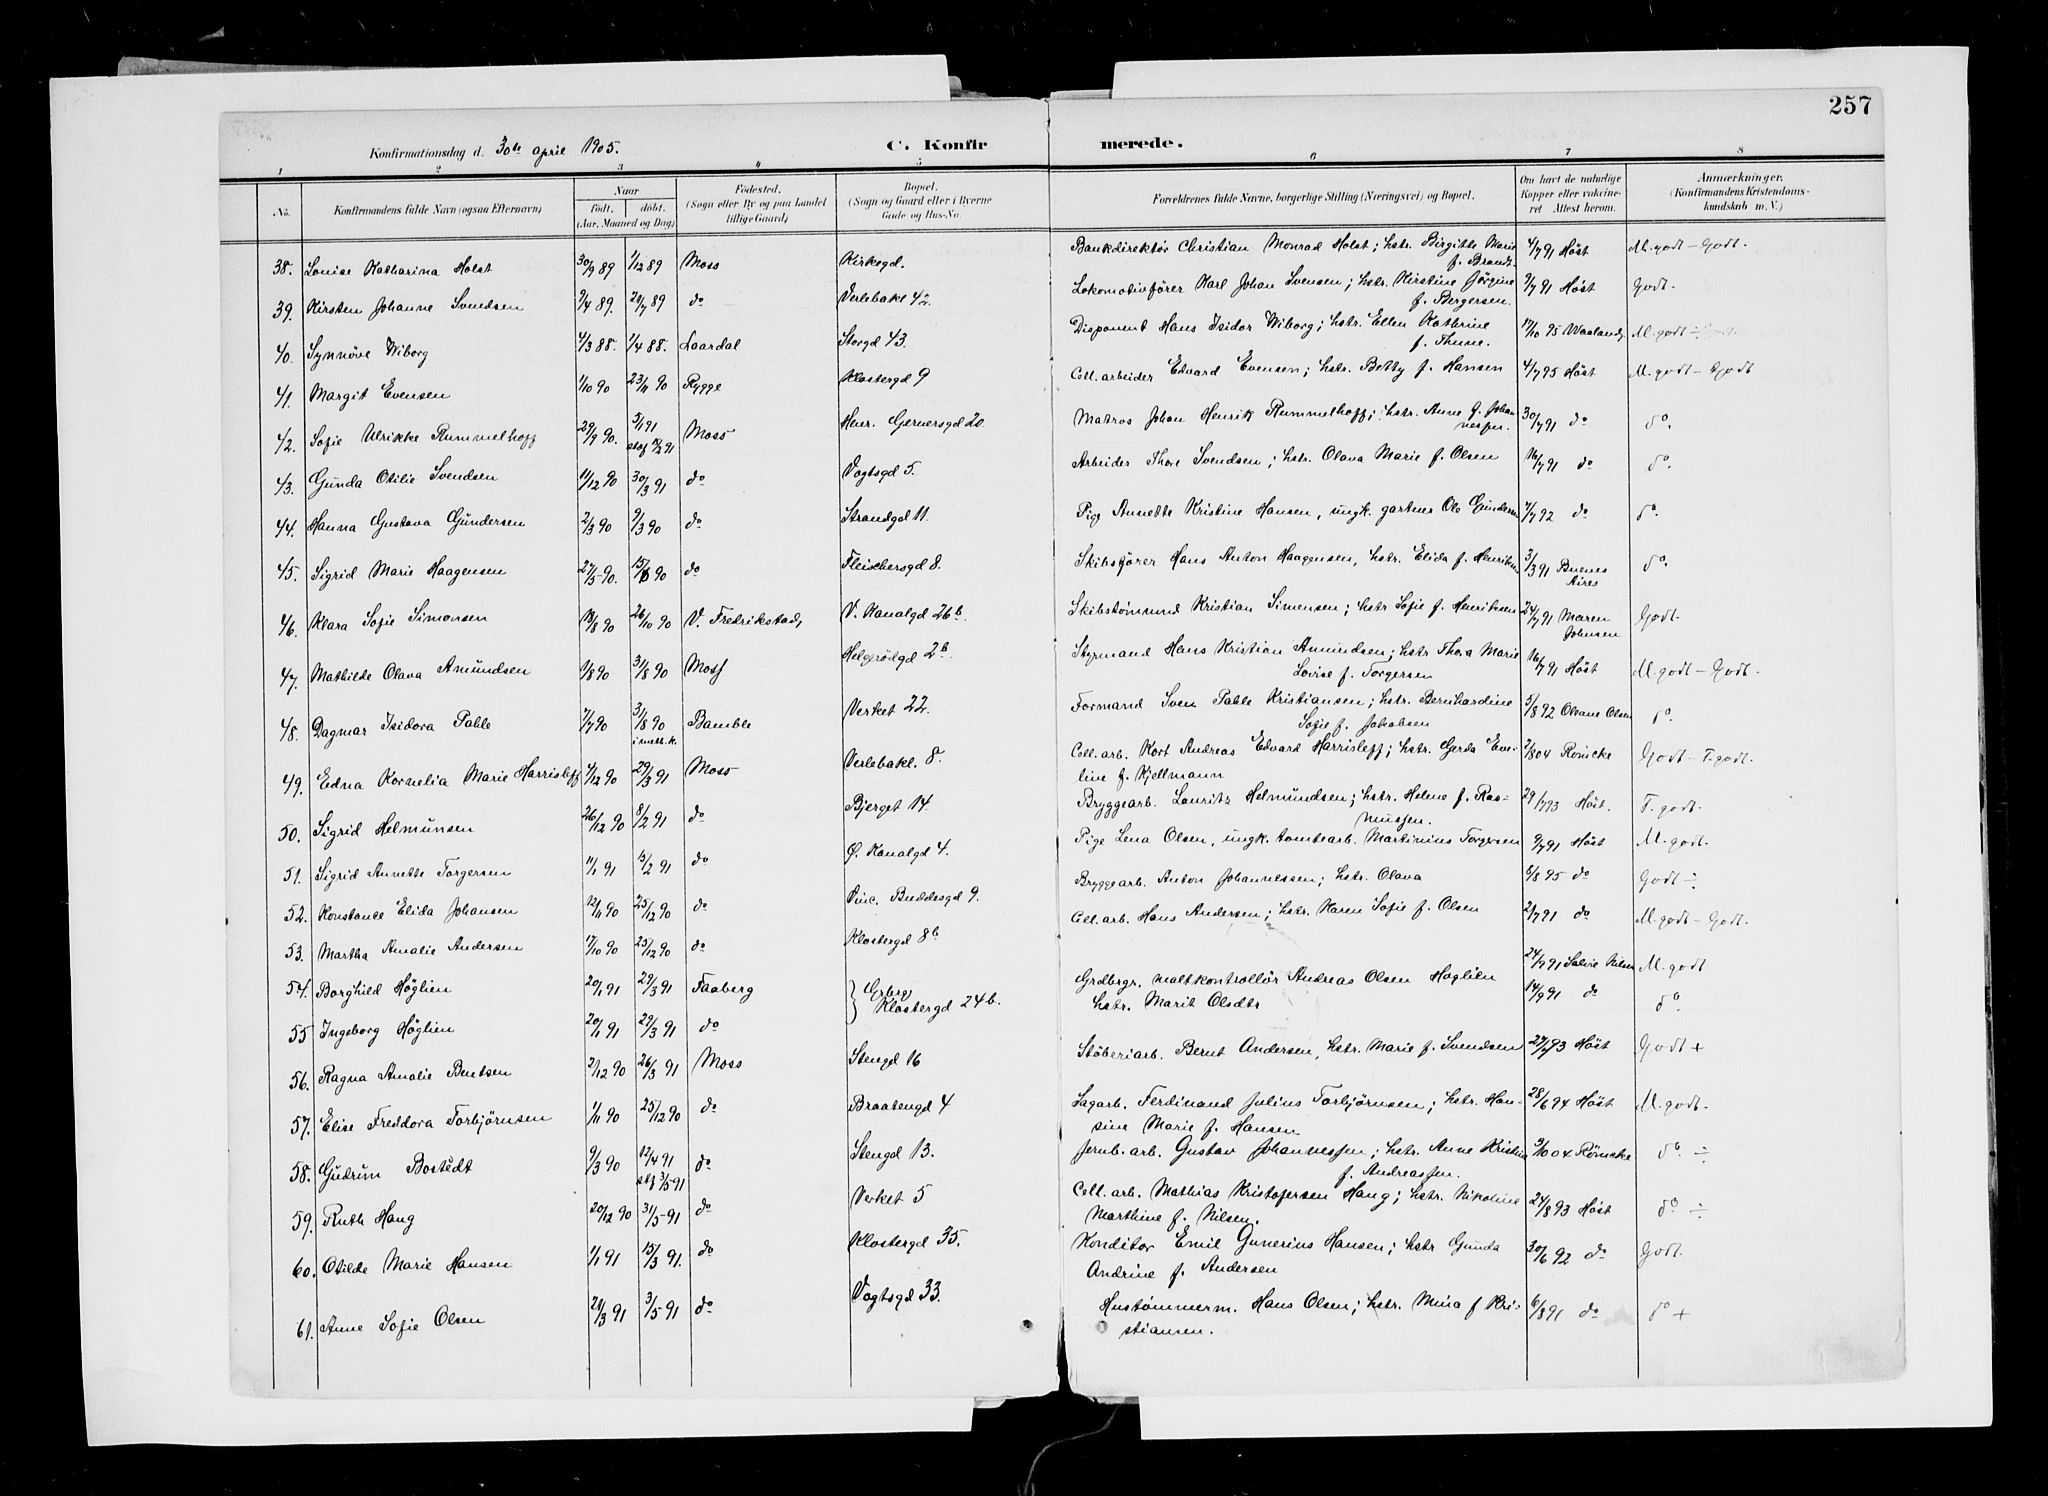 257
Konfirmationsdag d. 30te april 1905. C. Konfir merede.
1 2 3 4 5 6 7 8
No. Konfirmandens fulde Navn (ogsaa Efternavn) Naar Fødested. Bopæl. Forældrenes fulde Navne, borgerlige Stilling (Næringsvei) og Bopæl. Om havt de naturlige Anmærkninger.
født. døbt. (Sogn eller By og paa Landet (Sogn og Gaard eller i Byerne Kopper eller vakcine- (Konfirmandens Kristendoms-
(Aar, Maaned og Dag) tillige Gaard) Gade og Hus-No. ret Attest herom. kundskab m. V.)
38. Louise Katharina Holst 30/9 89 1/12 89 Moss Kirkegd. Bankdirektør Christian Monrad Holst; hstr. Birgitte Marie 4/7 91 Høst M. godt – Godt.
f. Brandt.
39. Kirsten Johanne Svendsen 9/4 89. 21/7 89 do Verlebakl 42. Lokomotivfører Karl Johan Svensen; hstr. Kirstine Jørgine 9/7 91 Høst Godt.
f. Bergersen.
40. Synnøve Wiborg 4/3 88. 1/4 88. Laardal Storgd 43. Disponent Hans Isidor Wiborg; hstr. Ellen Kathrine 17/10 95 Waaland M. godt ÷
f. Thune.
41. Margit Evensen 1/10 90 23/11 90 Rygge Klostergd 9 Cell. arbeider Edvard Evensen; hstr. Betty f. Hansen 4/7 95 Høst M. godt – Godt
42. Sofie Ulrikke Rummelhoff 29/9 90. 5/1 91 Moss Henr. Gernersgd 20. Matros Johan Henrik Rummelhoff; hstr. Anne G. Johan 30/7 91 do do.
stf 15/2 91 nesen.
43. Gunda Otilie Svendsen 11/12 90 30/3 91 do Vogtsgd 5. Arbeider Thore Svendsen; hstr. Olava Marie f. Olsen 16/7 91 do do.
44. Hanna Gustava Gundersen 2/3 90 9/3 90 do Strandgd 11. Pige Annette Kristine Hansen, ungk. gartner Ole Gundersen 7/7 92 do do.
45. Sigrid Marie Haagensen 27/5 90. 15/6 90 do Fleischersgd 8. Skibsfører Hans Anton Haagensen, hstr. Elida f. Henriksen 3/3 91 Buenos do.
Aires
46. Klara Sofie Simonsen 18/8 90 26/10 90 V. Fredrikstad, V. Kanalgd 26b. Skibstømmd Kristian Simensen; hstr Sofie f. Henriksen 24/7 91 Maren Godt.
Johnsen
47. Mathilde Olava Amundsen 1/8 90 31/8 90 Moss Helgerødgd 2B. Styrmand Hans Kristian Amundsen; hstr Thora Marie 16/7 91 Høst M. godt – Godt.
Lovise f. Torgersen
48. Dagmar Isidora Pahle 7/7 90 31/8 90 Bamble Verket 22. Formand Sven Pahle Kristiansen; hstr. Bernhardine 5/8 92 Oleane Olsen do.
i meth. k. Sofie f. Jakobsen
49. Edna Kornelia Marie Harrisleff 4/12 90 29/3 91 Moss Verlebakl. 8. Cell. arb. Kort Andreas Edvard Harrisleff; hstr. Gerda Eve- 2/8 04 Rönicke Godt – T. godt.
line f. Kjellmann
50. Sigrid Helmunsen 26/12 90 8/2 91 do Bjerget 14. Bryggearb. Lauritz Helmundsen; hstr. Helene f. Ras- 29/7 93 Høst. T. godt.
mussen.
51. Sigrid Annette Torgersen 11/1 91 15/2 91 do Ø. Kanalgd 4. Pige Lena Olsen, ungk. tomtearb. Martinius Torgersen 9/7 91 Høst M. godt.
52. Konstance Elida Johansen 12/11 90 25/12 90 do Vinc. Buddesgd 9. Bryggearb. Anton Johannessen; hstr. Olava 6/8 95 do Godt ÷
53. Martha Amalie Andersen 17/10 90 25/12 90 do Klostergd 8b Cell. arb. Hans Andersen; hstr. Karen Sofie f. Olsen 2/7 91 do M. godt – Godt.
54. Borghild Höglien 20/1 91 29/3 91 Faaberg } Grberg Klostergd 24b. Grdbrgr. maltkontrollør Andreas Olsen Höglien 24/9 91 Salve Nilsen M. godt
55 Ingeborg Höglien 20/1 91 29/3 91 do hstr. Marit Olsdtr 14/9 91 do do.
56. Ragna Amalie Bentsen 2/12 90 26/3 91 Moss Stengd 16 Støberiarb. Bernt Andersen, hstr. Marie f. Svendsen 27/7 93 Høst Godt +
57. Elise Freddora Torbjørnsen 1/11 90 25/12 90 do Braatengd 4 Sagarb. Ferdinand Julius Torbjørnsen; hstr. Han- 28/6 94 Høst M. godt.
sine Marie f. Hansen.
58. Gudrun Bostedt 9/3 90 12/4 91 do Stengd 13. Jernb. arb. Gustav Johannessen; hstr. Anne Kristine 3/10 04 Rönicke do. ÷
stf 3/5 91 f. Andreassen.
59. Ruth Haug 20/12 90 31/5 91 do Verket 5 Cell. arb. Mathias Kristofersen Haug; hstr. Nikoline 24/8 93 Høst do ÷
Marthine f. Nilsen.
60. Otilde Marie Hansen 1/1 91 15/3 91. do Klostergd 35. Konditor Emil Gunerius Hansen; hstr Gunda 30/6 92 do Godt.
Andrine f. Andersen
61. Anne Sofie Olsen 21/3 91 3/5 91 do Vogtsgd 33. Hustømmerm. Hans Olsen; hstr. Mina f Kri- 6/8 91 do do +
stiansen.